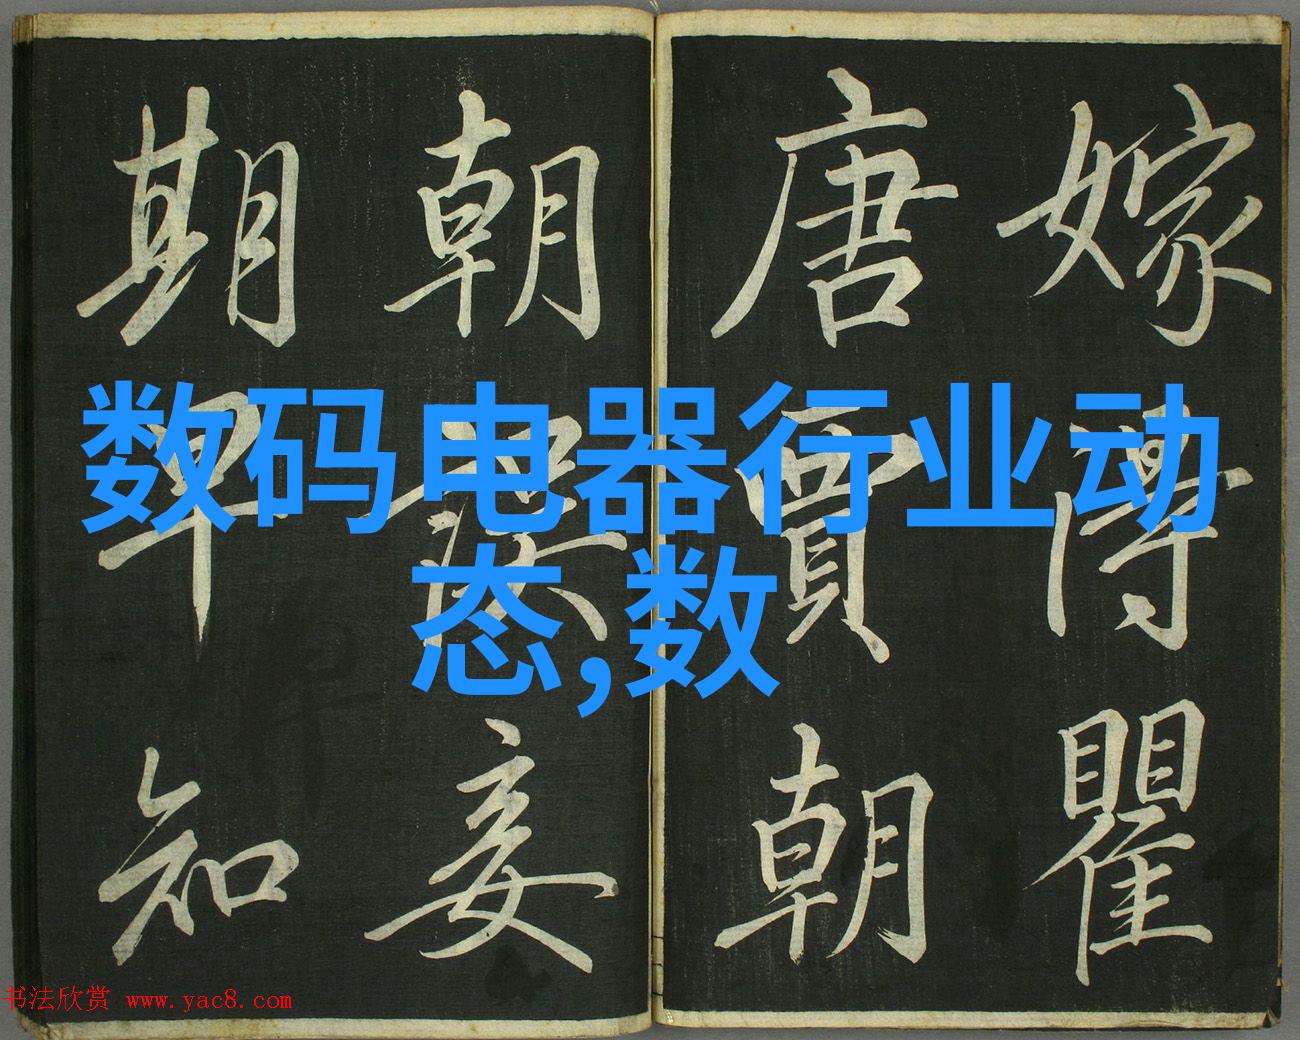 数码电器行业动
态,数
嫁得瞿
唐賈朝
朝誤妾
期早知
书法欣赏 www.yac8.com